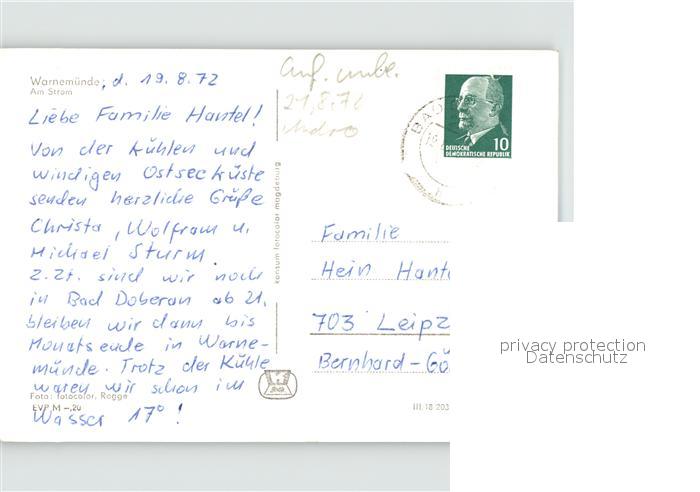 Warnemünde, d. 19.8.72
Am Strom
Liebe Familie Hantel!
Von der kühlen und
windigen Ostseeküste
senden herzliche Grüße
Christa, Wolfram u.
Michael Sturm.
Z. Zt. sind wir noch
in Bad Doberan ab 21.
bleiben wir dann bis
Monatsende in Warne-
münde. Trotz der Kühle
waren wir schon im
Foto: fotocolor, Rogge
Wasser 17° !
EVP M -,20
21.8.72
konsum fotocolor magdeburg
BAD
10
DEUTSCHE
DEMOKRATISCHE REPUBLIK
Familie
Hein Hant
703 Leipz
Bernhard-Gö
III 18 203
privacy protection
Datenschutz